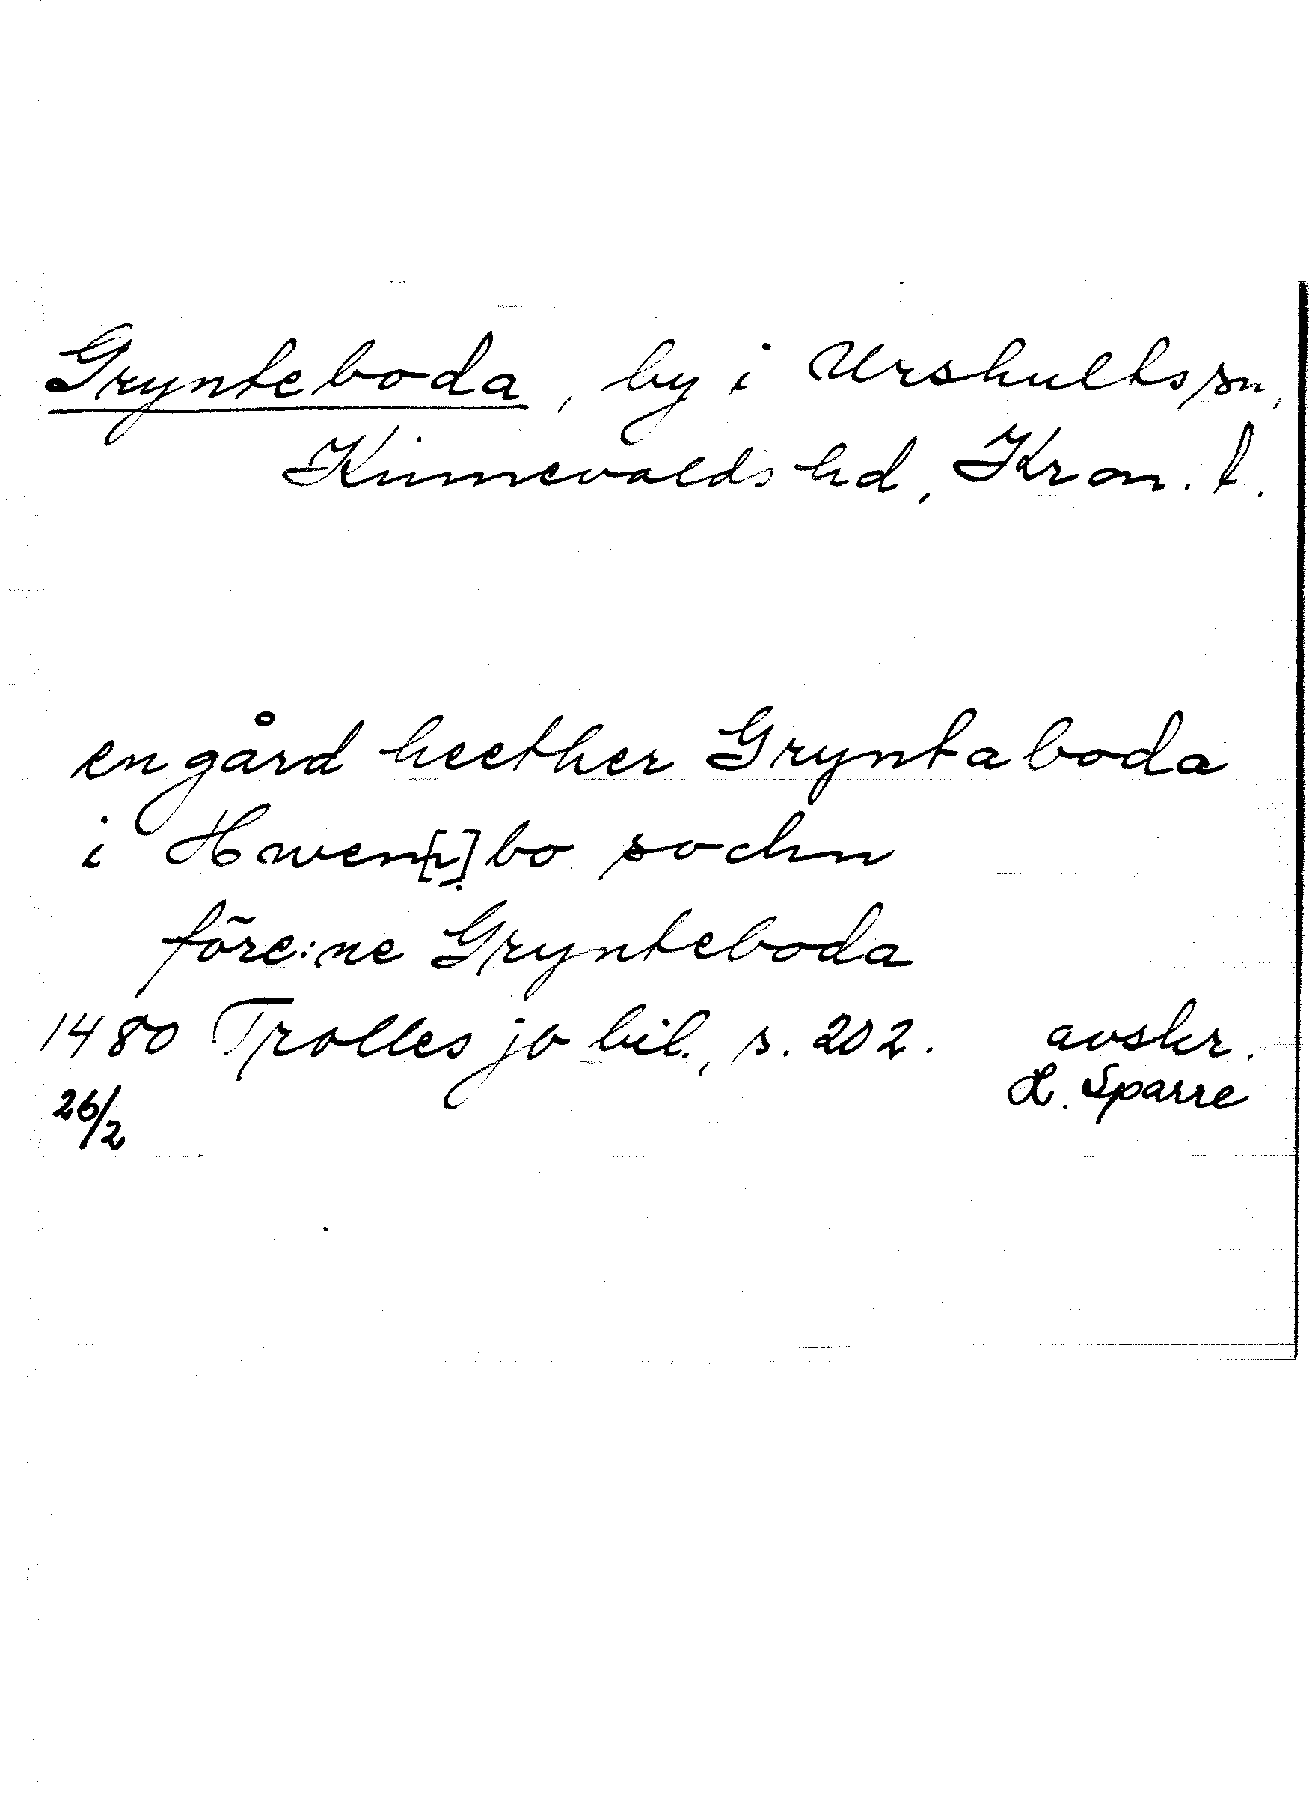 Grynteboda, by i Urshults sn,
Kinnevalds hd, Kron. l.
en gård heether Gryntaboda
i Hwen[n]bo sochn
före:ne Grynteboda
1480 Trolles jb bil., s. 202. avskr.
26/2 L. Sparre